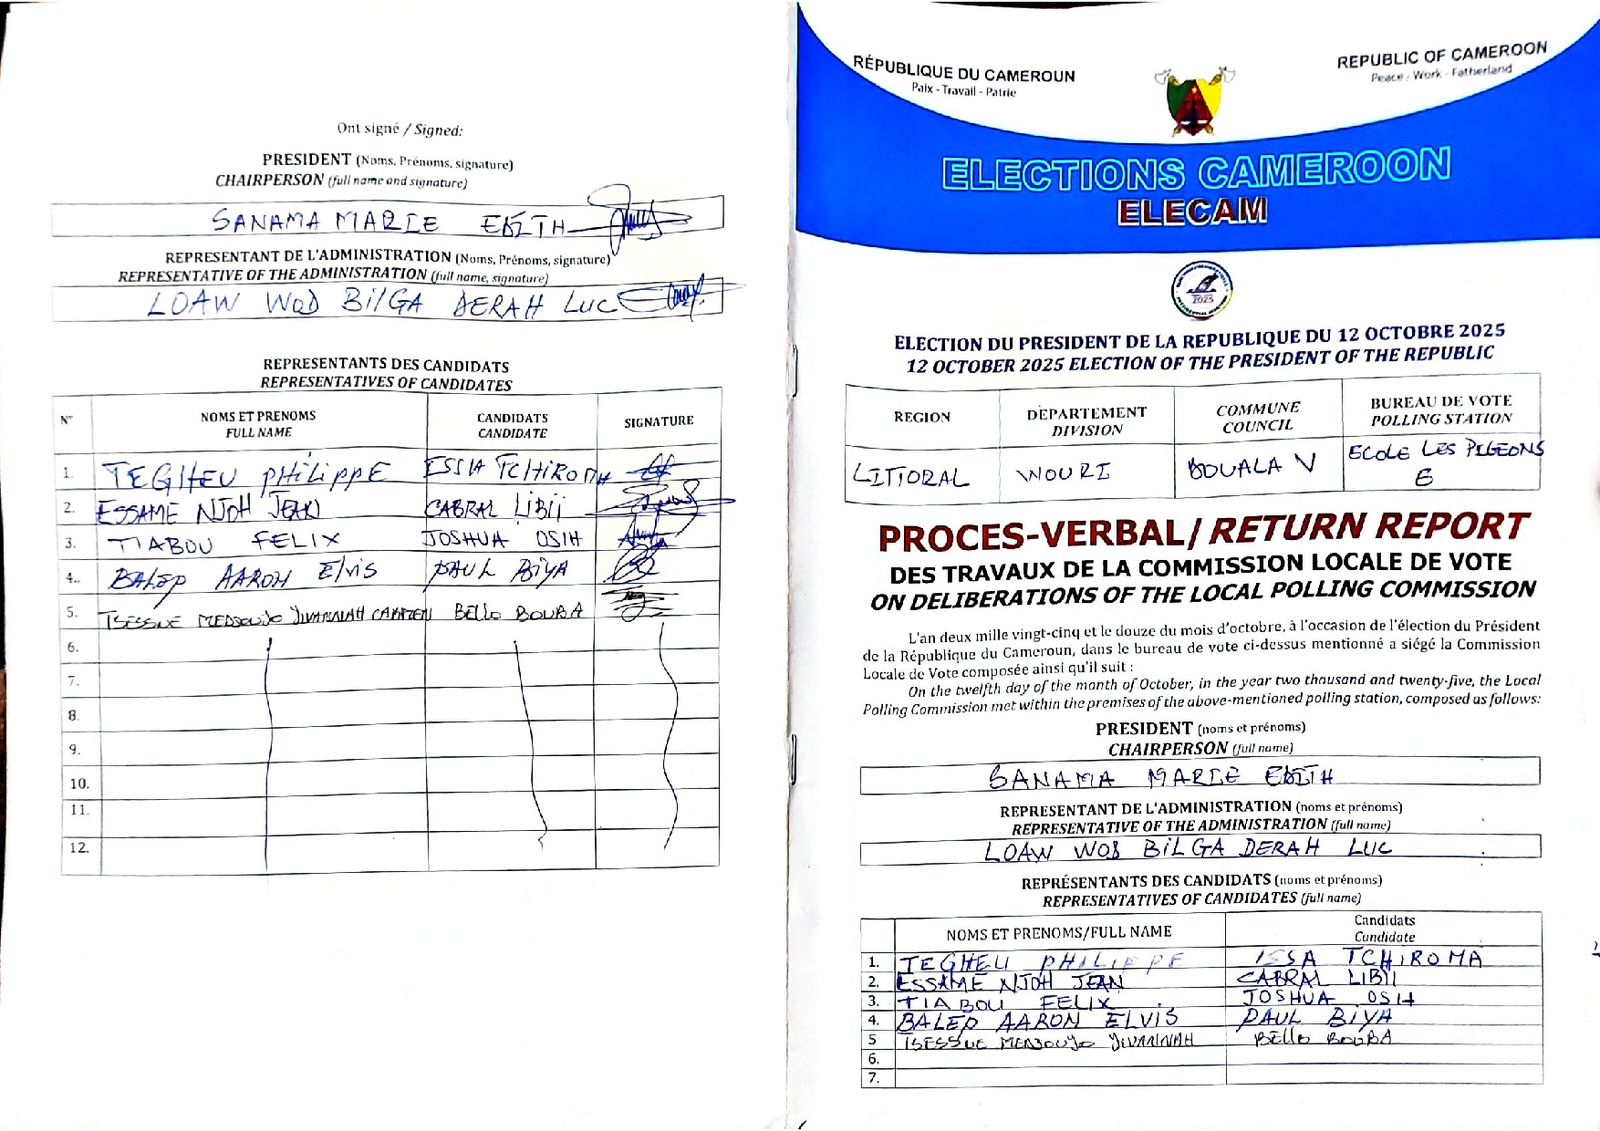 Ont signé / Signed:
PRESIDENT (Noms, Prénoms, signature)
CHAIRPERSON (full name and signature)
SANAMA MARIE EDITH
REPRESENTANT DE L'ADMINISTRATION (Noms, Prénoms, signature)
REPRESENTATIVE OF THE ADMINISTRATION (full name, signature)
LOAW WOD BilGA DERAH LUC
REPRESENTANTS DES CANDIDATS
REPRESENTATIVES OF CANDIDATES
N° NOMS ET PRENOMS FULL NAME CANDIDATS CANDIDATE SIGNATURE
1. TEGHEU PHILIPPE ISSA TCHIROMA
2. ESSAME NJOH JEAN CABRAL LIBII
3. TIABOU FELIX JOSHUA OSIH
4.. BALEP AARON Elvis PAUL BIYA
5. BELLO BOUBA
6.
7.
8.
9.
10.
11.
12.
RÉPUBLIQUE DU CAMEROUN
Paix - Travail - Patrie
REPUBLIC OF CAMEROON
Peace - Work - Fatherland
ELECTIONS CAMEROON
ELECAM
ELECTION DU PRESIDENT DE LA REPUBLIQUE DU 12 OCTOBRE 2025
12 OCTOBER 2025 ELECTION OF THE PRESIDENT OF THE REPUBLIC
REGION DEPARTEMENT DIVISION COMMUNE COUNCIL BUREAU DE VOTE POLLING STATION
LITTORAL WOURI DOUALA V ECOLE LES PIGEONS
PROCES-VERBAL/RETURN REPORT
DES TRAVAUX DE LA COMMISSION LOCALE DE VOTE
ON DELIBERATIONS OF THE LOCAL POLLING COMMISSION
L'an deux mille vingt-cinq et le douze du mois d'octobre, à l'occasion de l'élection du Président
de la République du Cameroun, dans le bureau de vote ci-dessus mentionné a siégé la Commission
Locale de Vote composée ainsi qu'il suit :
On the twelfth day of the month of October, in the year two thousand and twenty-five, the Local
Polling Commission met within the premises of the above-mentioned polling station, composed as follows:
PRESIDENT (noms et prénoms)
CHAIRPERSON (full name)
SANAMA MARIE EDITH
REPRESENTANT DE L'ADMINISTRATION (noms et prénoms)
REPRESENTATIVE OF THE ADMINISTRATION (full name)
LOAW WOD BILGA DERAH LUC
REPRÉSENTANTS DES CANDIDATS (noms et prénoms)
REPRESENTATIVES OF CANDIDATES (full name)
NOMS ET PRENOMS/FULL NAME Candidats Candidate
1. TEGHEU PHILIPPE ISSA TCHIROMA
2. ESSAME NJOH JEAN CABRAL LIBII
3. TIABOU FELIX JOSHUA OSIH
4. BALEP AARON ELVIS PAUL BIYA
5 BELLO BOUBA
6.
7.